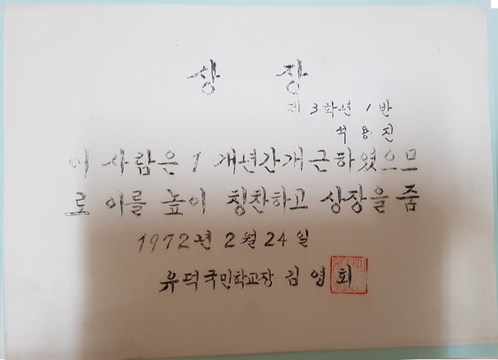 상 장
제 3학년 1 반
석용진
이 사람은 1 개년간개근하였으므
로 이를 높이 칭찬하고 상장을 줌
1972년 2월 24일
유덕국민학교장 김영회